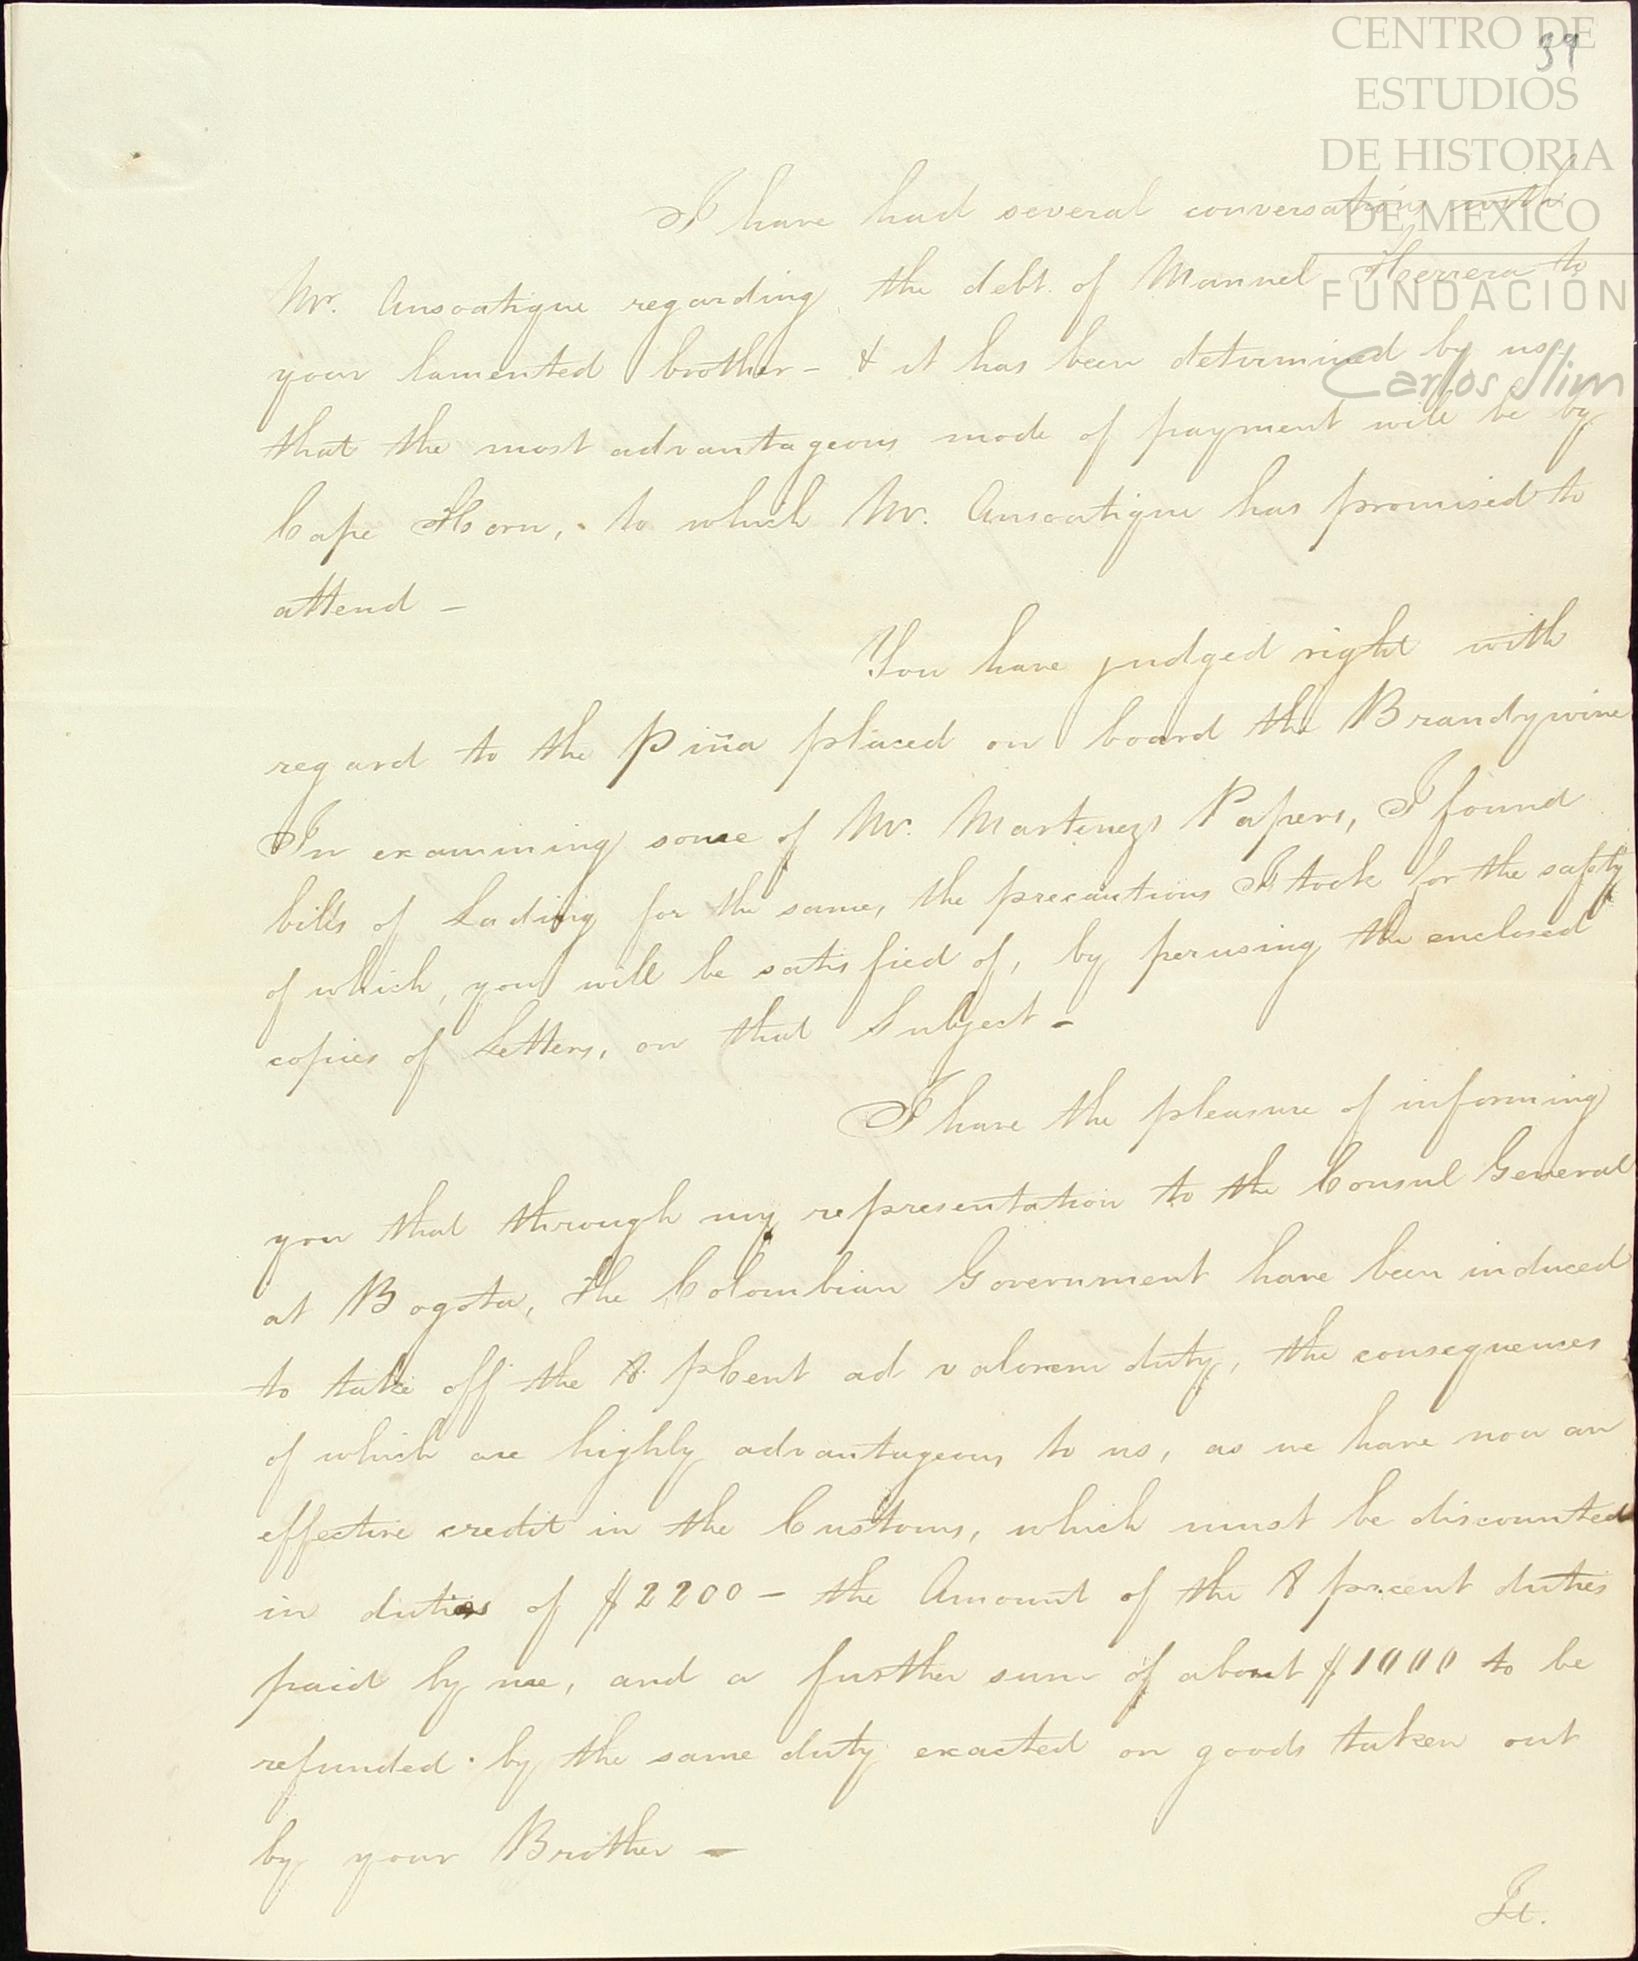 CENTRO DE
ESTUDIOS
DE HISTORIA
DE MEXICO
FUNDACIÓN
Carlos Slim
39
I have had several conversations with
Mr. Ansoatigue regarding the debt of Manuel Herrera to
your lamented brother - & it has been determined by us,
that the most advantageous mode of payment will be by
Cape Horn, to which Mr. Ansoatigue has promised to
attend -
You have judged right with
regard to the Piña placed on board the Brandywine
In examining some of Mr. Martinezs Papers, I found
bills of Lading for the same, the precautions I took for the safety
of which, you will be satisfied of, by perusing the enclosed
copies of Letters, on that Subject -
I have the pleasure of informing
you that through my representation to the Consul General
at Bogota, the Colombian Government have been induced
to take off the 8 pCent ad valorem duty, the consequences
of which are highly advantageous to us, as we have now an
effective credit in the Customs, which must be discounted
in duties of $2200 - the Amount of the 8 prcent duties
paid by me, and a further sum of about $1000 to be
refunded by the same duty exacted on goods taken out
by your Brother -
It.